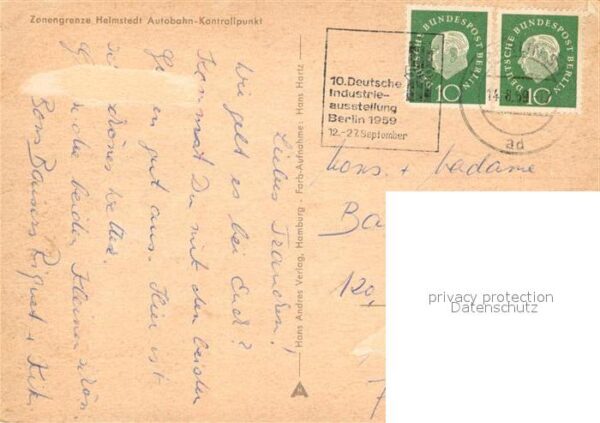 Zonengrenze Helmstedt Autobahn-Kontrollpunkt
DEUTSCHE BUNDESPOST BERLIN
10
DEUTSCHE BUNDESPOST BERLIN
10
10. Deutsche
Industrie-
ausstellung
Berlin 1959
12.-27. September
14.8.59
ad
Liebes Franchen!
Wie geht es bei Euch?
Kommst Du mit den beiden
gut aus. Hier ist
schönes Wetter.
beiden Kleinen schön.
Bons Baisers
Hans Andres Verlag, Hamburg · Farb-Aufnahme: Hans Hartz
Mons + Madame
Ba
120,
privacy protection
Datenschutz